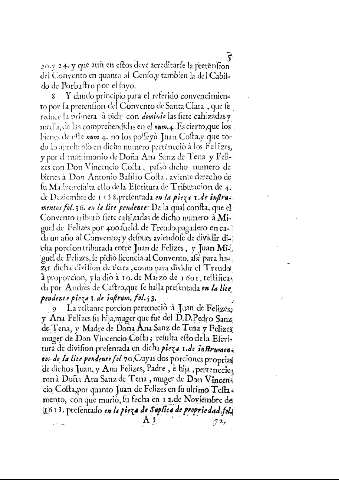 5
20. y 24. y que aun en estos deve acreditarse la pretension
del Convento en quanto al Censo, y tambien la del Cabil-
do de Barbastro por el suyo.
8 Y dando principio para el referido convencimien-
to por la pretension del Convento de Santa Clara, que se
reduce la primera à pedir con dominio las siete cahizadas y
media, de las comprehendidas en el num. 4. Es cierto, que los
bienes de este num. 4. no los posseyò Juan Costa, y que to-
do lo aprehenso en dicho numero perteneciò à los Felizes,
y por el matrimonio de Doña Ana Sanz de Tena y Feli-
zes con Don Vincencio Costa, passò dicho numero de
bienes à Don Antonio Basilio Costa, aviente derecho de
su Madre; consta esto de la Escritura de Tributacion de 4.
de Deziembre de presentada en la pieza 1. de instru-
mentos fol. en lite pendente: De la qual consta, que el
Convento tributò siete cahizadas de dicho numero à Mi-
guel de Felizes por 400. sueld. de Treudo pagadero en ca-
da un año al Convento; y despues aviendose de dividir di-
cha porcion tributada entre Juan de Felizes, y Juan Mi-
guel de Felizes, se pidiò licencia al Convento, assi para ha-
zer dicha division de tierra, como para dividir el Treudo
à proporcion, y la diò à 10. de Marzo de 1601. testifica-
da por Andres de Castro, que se halla presentada en la lite
pendente pieza 1. de instrum. fol. 53.
9 La restante porcion perteneciò à Juan de Felizes,
y Ana Felizes su hija, muger que fue del D. D. Pedro Sanz
de Tena, y Madre de Doña Ana Sanz de Tena y Felizes
muger de Don Vincencio Costa; resulta esto de la Escri-
tura de division presentada en dicha pieza 1. de instrumen-
tos de la lite pendente fol 70. Cuyas dos porciones proprias
de dichos Juan, y Ana Felizes, Padre, e hija, pertenecie-
ron à Doña Ana Sanz de Tena, muger de Don Vincen-
cio Costa, por quanto Juan de Felizes en su ultimo Testa-
mento, con que muriò, su fecha en 12. de Noviembre de
1611. presentado en la pieza de Suplica de propriedad, fol.
A 3 92.